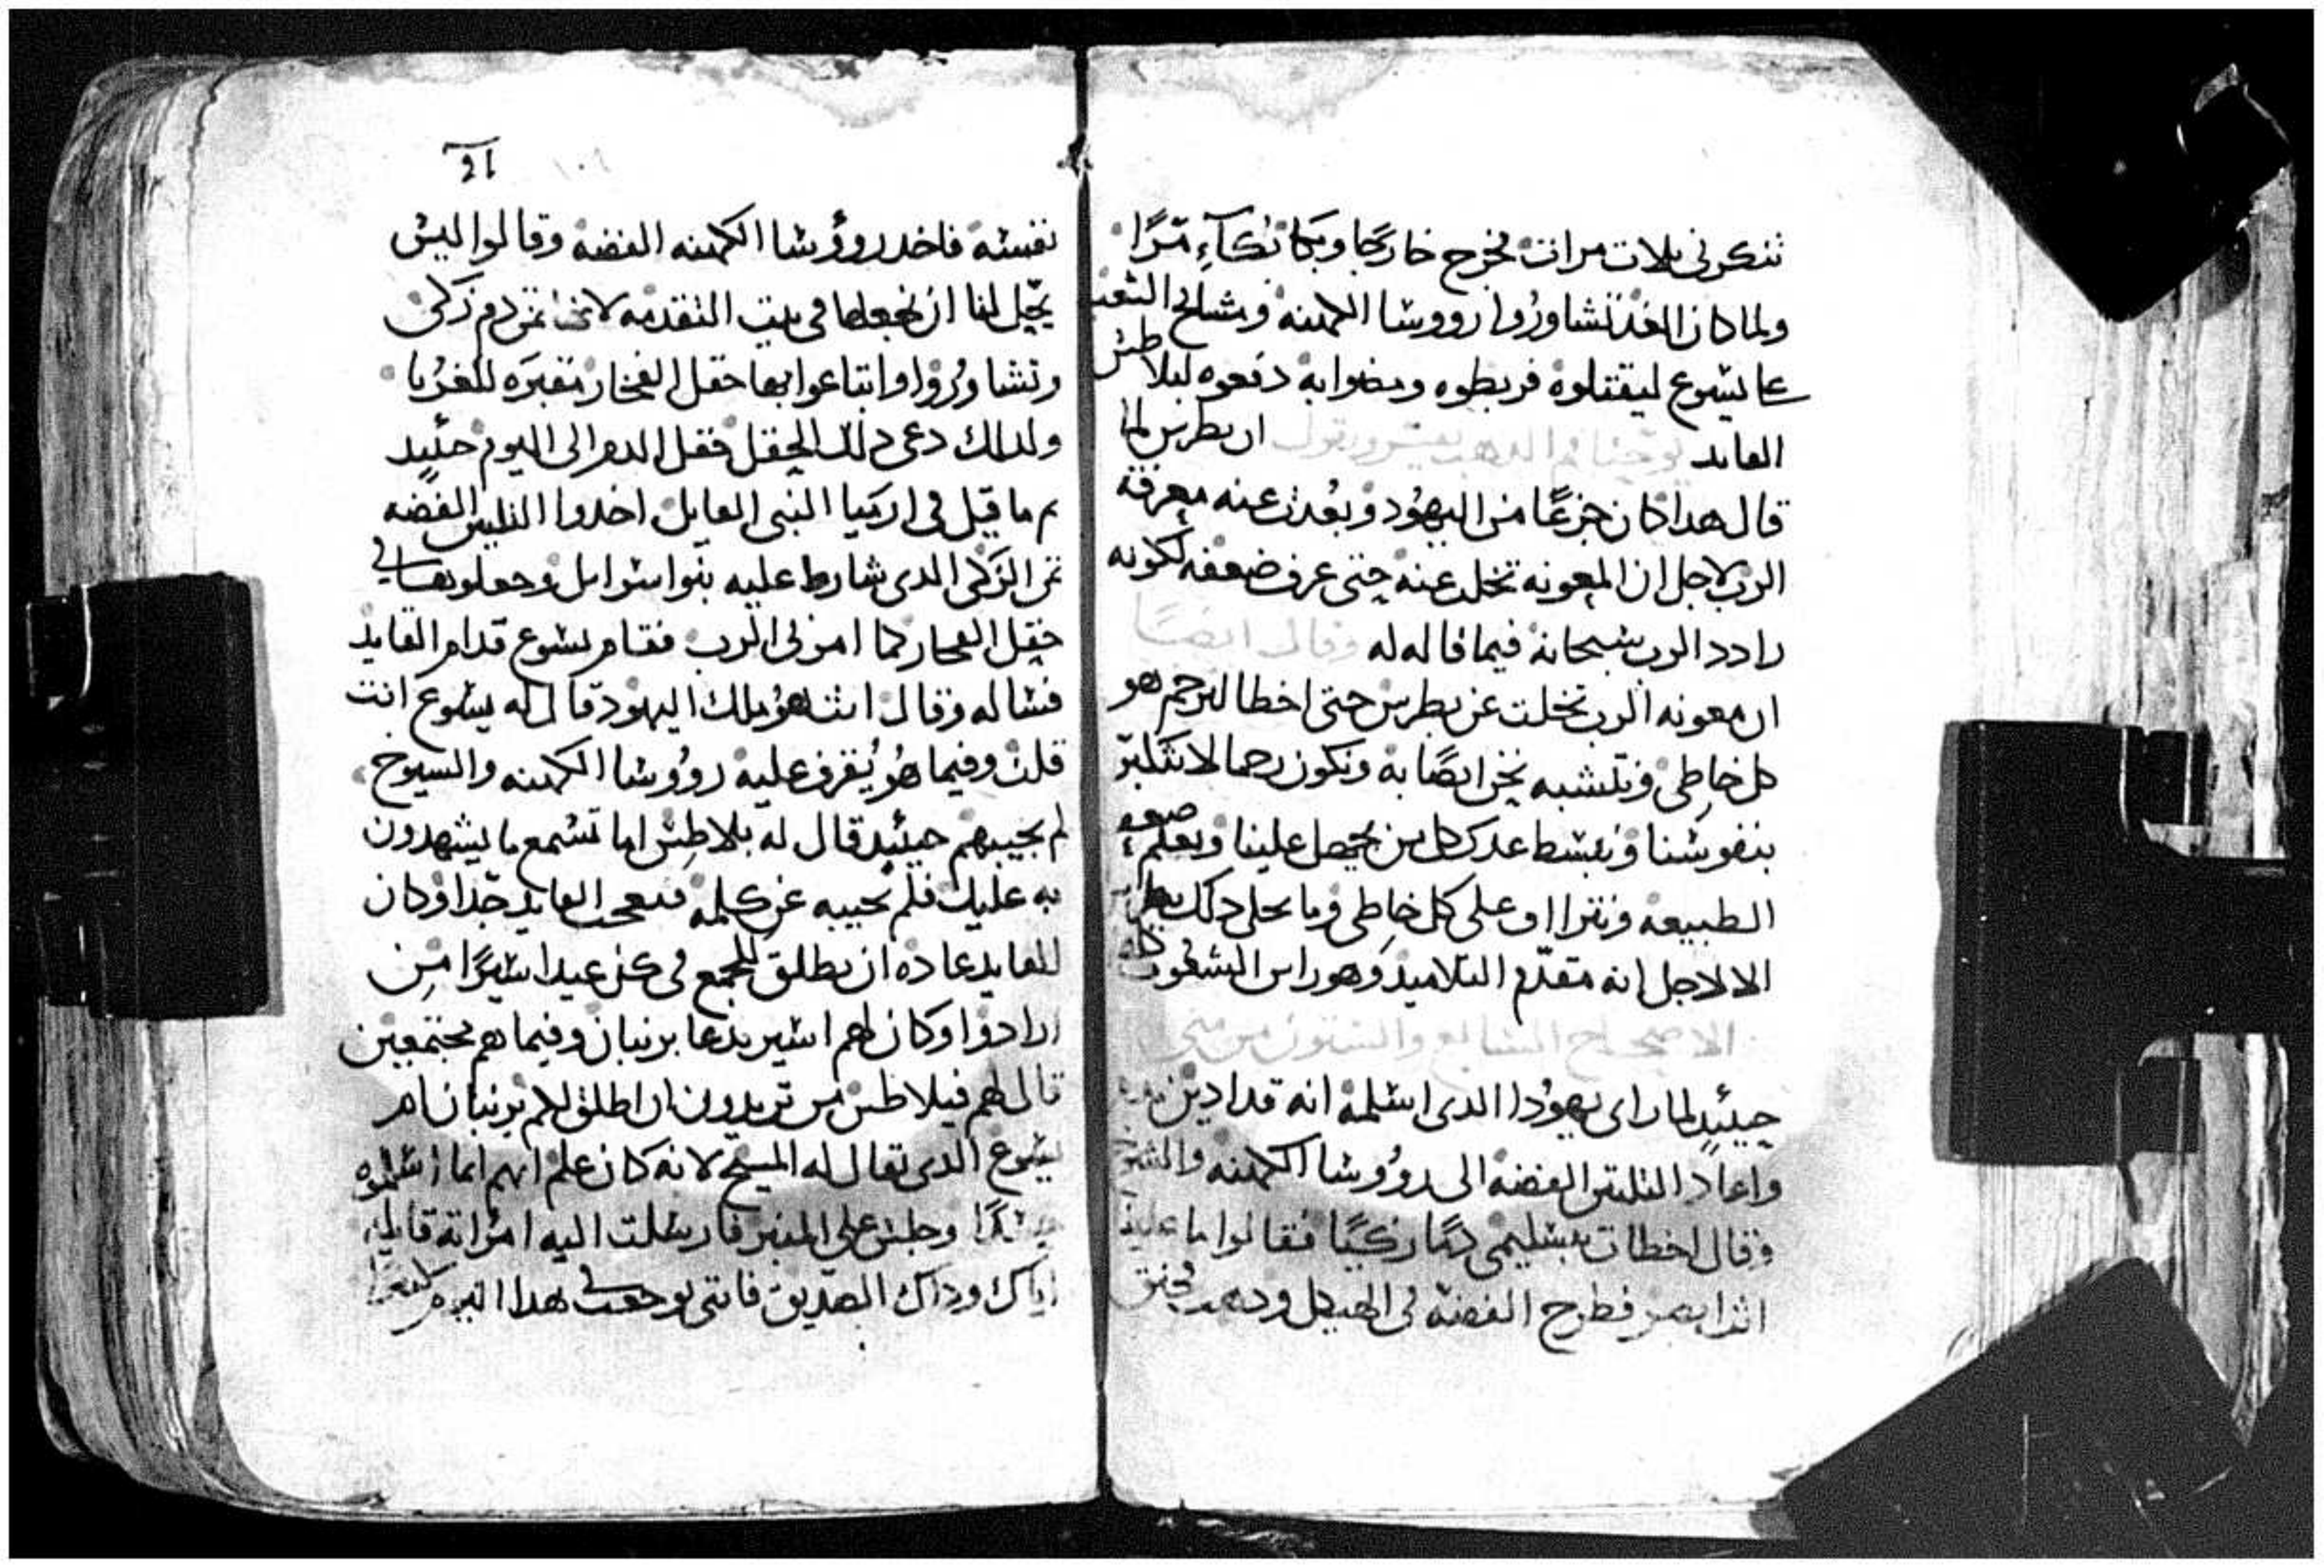 تنكرني تلات مرات فخرج خارجا وبكا بُكآءٍ مّرًا
ولما كان الغد تشاوروا رووسا الكهنه ومشايخ الشعب
عا يسوع ليقتلوه فربطوه ومضوا به دفعوه لبلاطس
القايد يوحنا فم الدهب يفسر ويقول ان بطرس لما
قال هدا كان جزعًا من اليهود وبعدت عنه معرفة
الرب لاجل ان المعونه تخلت عنه حتى عرف ضعفه لكونه
رادد الرب سبحانه فيما قاله له وقال ايضًا
ان معونه الرب تخلت عن بطرس حتى اخطا ليرحم هو
كل خاطي ونتشبه نحن ايضًا به ونكون رحما لا نتكبر
بنفوسنا ونبسط عدر كل من يحصل علينا ونعلم ضعف
الطبيعه ونتراااف على كل خاطي وما تخلى دلك بطرس
الا لاجل انه متقدّم التلاميذ وهو راس
الاصحاح السابع والستون من متى
حينيدٍ لما راى يهودا الدى اسلمه انه قد ادين
واعاد التلتين الفضه الى روُوسا الكهنه والشيوخ
وقال اخطات بتسليمي دمًا زكيًا فقالوا ما علينا
انت ابصر فطرح الفضه في الهيكل و خنق
101
نفسه فاخد روُوسا الكهنه الفضه وقالوا ليس
يحّل لنا ان نجعلها في بيت التقدمه لانها تمن دم زكى
وتشاوروا وابتاعوا بها حقل الفخار مقبره للغربا
ولدلك دعى دلك الحقل حقل الدم الى اليوم حنيد
تم ما قيل في ارميا النبى القايل اخدوا التلتين الفضه
تمن الزكى الدى شارط عليه بنوا اسرايل وجعلوها في
حقل الفخار كما امرني الرب فقام يسوع قدام القايد
فساله وقال انت هو ملك اليهود قال له يسوع انت
قلت وفيما هو يُقرف عليه روُوسا الكهنه والسيوخ
لم يجيبهم حينيدٍ قال له بلاطس اما تسمع ما يشهدون
به عليك فلم يجيبه عن كلمه فتعجب القايد جّدا وكان
للقايد عاده ان يطلق للجمع في كل عيد اسيرًا مِن
ارادوا وكان لهم اسير يدعا برنبان وفيما هم مجتمعين
قال لهم فيلاطس من تريدون ان اطلق لكم برنبان ام
يسوع الدى يقال له المسيح لانه كان علم انهم انما اسلموه
حسدًا وجلس على المنبر فارسلت اليه امراته قايله
اياك وداك الصديق فانني توجعت هدا اليوم كثيرًا